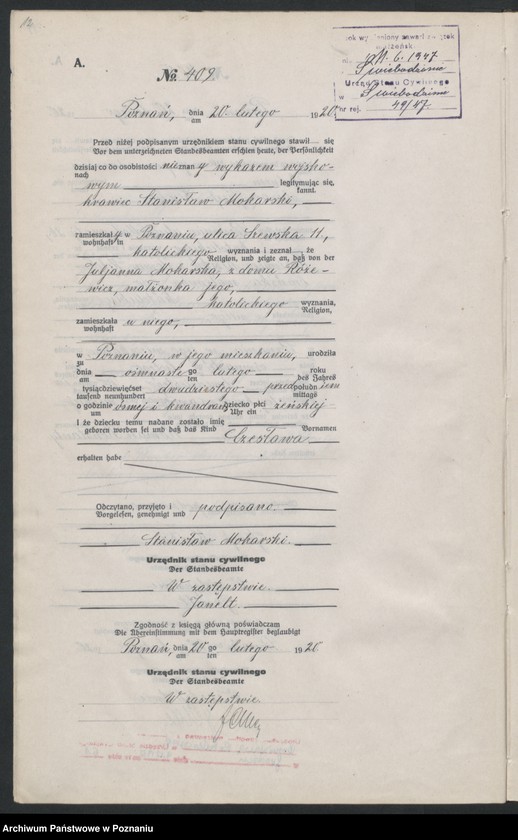 A.
№ 409.
11. 6. 1947
Świebodzinie
Urząd Stanu Cywilnego
w Świebodzinie
Nr rej. 49/47
Poznań, dnia 20. lutego 1920.
am
Przed niżej podpisanym urzędnikiem stanu cywilnego stawił się
Vor dem unterzeichneten Standesbeamten erschien heute, der Persönlichkeit
dzisiaj co do osobistości nieznany wykazem wojsko-
nach
wym legitymując się,
kannt.
krawiec Stanisław Mokarski,
zamieszkały w Poznaniu, ulica Szewska 11,
wohnhaft in
katolickiego wyznania i zeznał że
Religion, und zeigte an, daß von der
Juljanna Mokarska, z domu Róże-
wicz, małżonka jego,
katolickiego wyznania,
Religion,
zamieszkała u niego,
wohnhaft
w Poznaniu, w jego mieszkaniu, urodziła
zu
dnia ośmnastego lutego roku
am ten des Jahres
tysiącdziewięćset dwudziestego przedpołudniem
tausend neunhundert mittags
o godzinie ósmej i kwandrans dziecko płci żeńskiej
um Uhr ein
i że dziecku temu nadane zostało imię
geboren worden sei und daß das Kind Vornamen
Czesława
erhalten habe
Odczytano, przyjęto i podpisano.
Vorgelesen, genehmigt und
Stanisław Mokarski.
Urzędnik stanu cywilnego
Der Standesbeamte
W zastępstwie.
Janelt.
Zgodność z księgą główną poświadczam
Die Übereinstimmung mit dem Hauptregister beglaubigt
Poznań, dnia 20 go lutego 1920
am ten
Urzędnik stanu cywilnego
Der Standesbeamte
W zastępstwie.
Archiwum Państwowe w Poznaniu